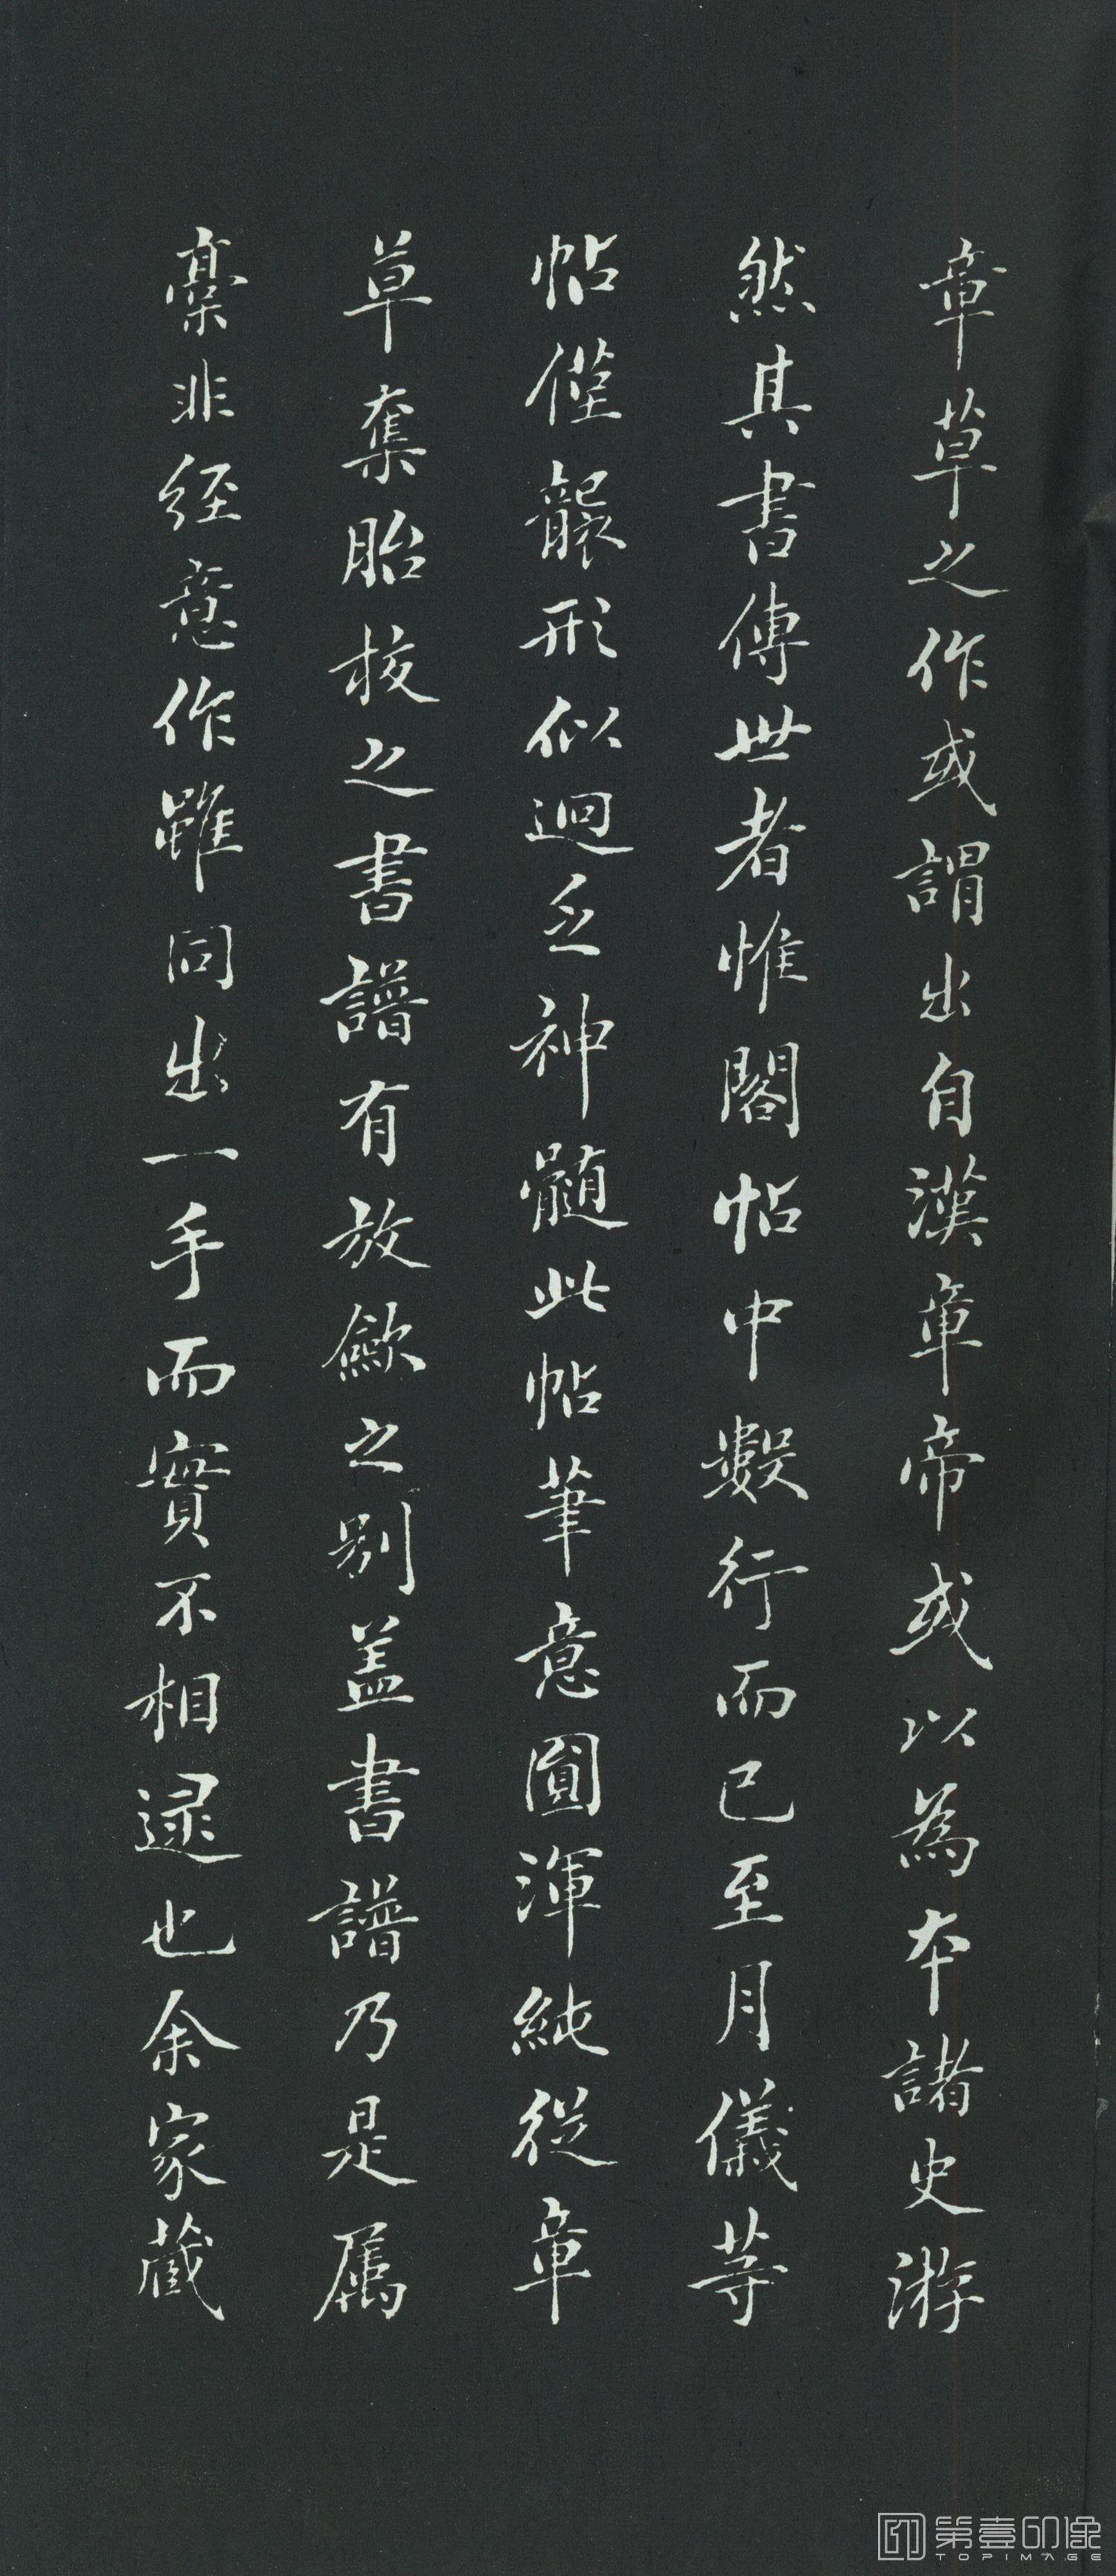 章草之作或謂出自漢章帝或以為本諸史游
然其書傳世者惟閣帖中數行而已至月儀等
帖僅襲形似迥乏神髓此帖筆意圓渾純從章
草奪胎校之書譜有放斂之別盖書譜乃是屬
稾非經意作雖同出一手而實不相逮也余家藏
第壹印像
TOPIMAGE